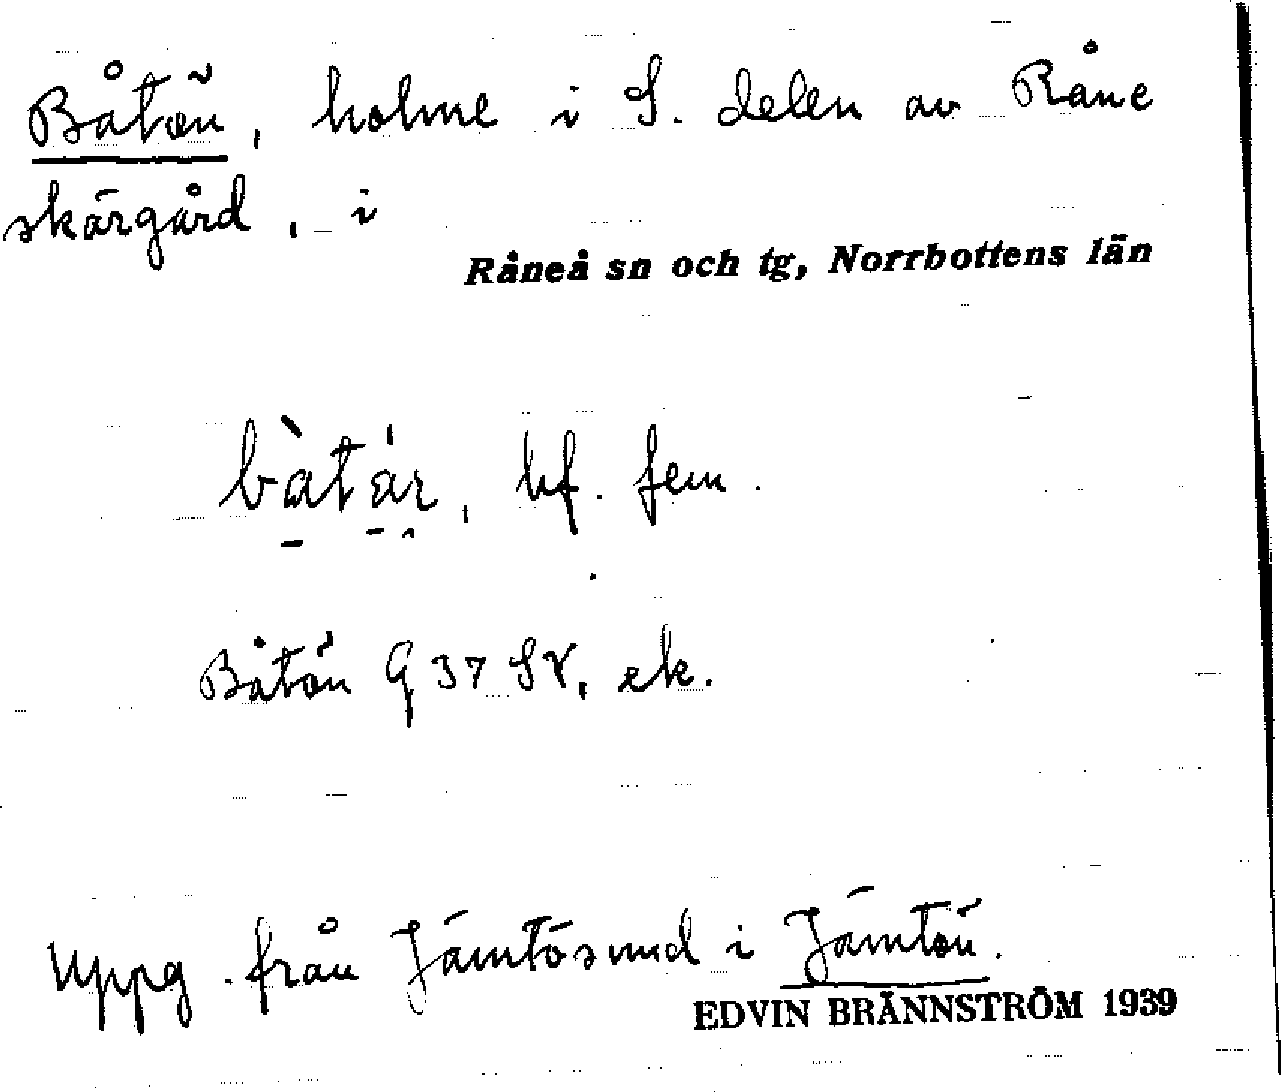 Båtön, holme i S. delen av Råne
skärgård, i
Råneå sn och tg, Norrbottens län
bf. fem.
Båtön 9 37 SV, ek.
Uppg. från Jämtösund i Jämtön.
EDVIN BRÄNNSTRÖM 1939